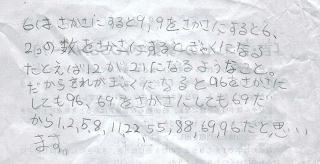 6はさかさにすると9,9をさかさにすると6、
2この数をさかさにするとぎゃくになる
たとえば12が、21になるようなこと。
だからそれがぎゃくになると96をさかさに
しても96、69をさかさにしても69だ
から1,2,5,8,11,22,55,88,69,96だと思い
ます。